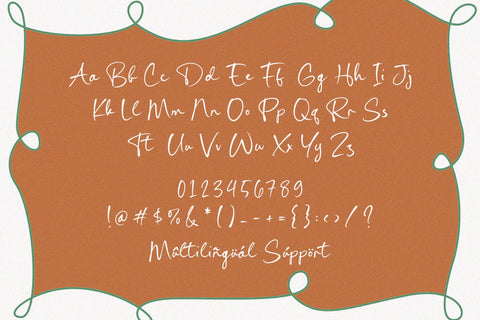 Aa Bb Cc Dd Ee Ff Gg Hh Ii Jj
Kk Ll Mm Nn Oo Pp Qq Rr Ss
Tt Uu Vv Ww Xx Yy Zz
0123456789
!@#$%&*()_-+={}:<>/?
Mâltilìñgüál Súppört